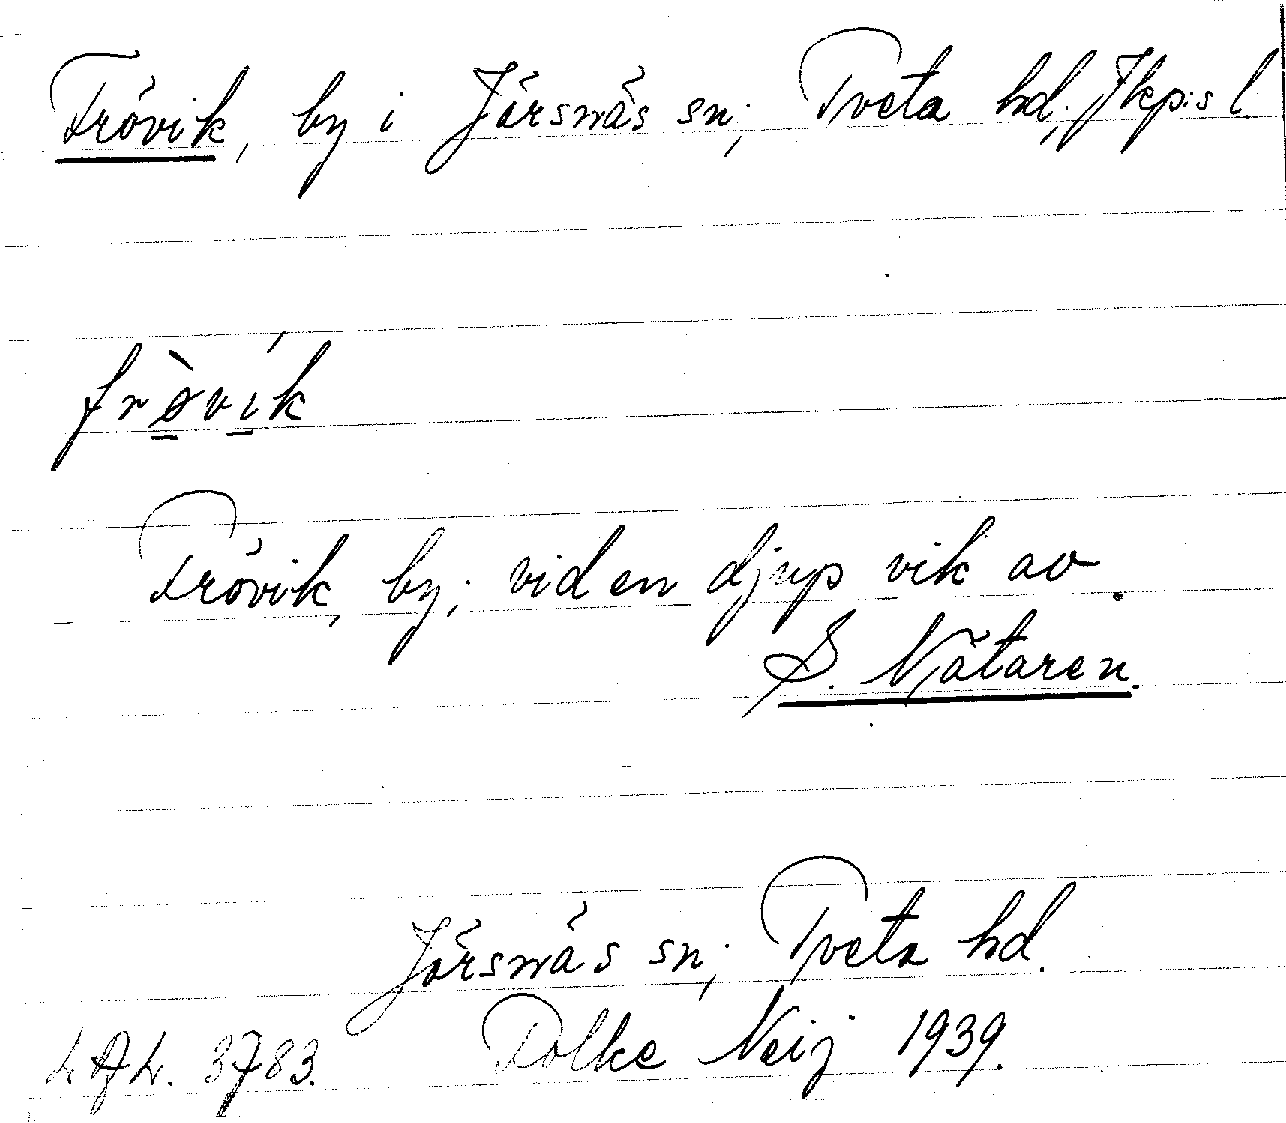 Frövik, by i Järsnäs sn; Tveta hd; Jkp:s l.
frø̀vík
Frövik, by; vid en djup vik av
S. Nätaren.
Järsnäs sn; Tveta hd.
Folke Neij 1939.
3783.